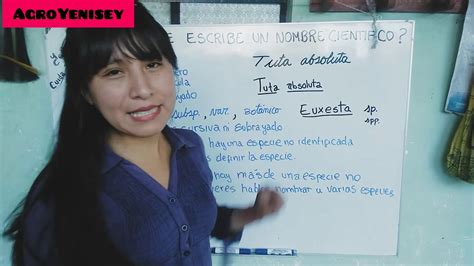 AgroYenisey
E ESCRIBE UN NOMBRE CIENTIFICO?
Tuta absoluta
Tuta absoluta
ero
ayado
subsp., var., botánico
Euxesta sp.
spp.
ursiva ni subrayado
hay una especie no identificada
definir la especie.
hay más de una especie no
eres hablar nombrar a varias especies